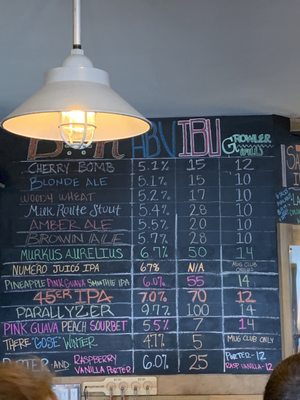 ABV IBU GROWLER
CHERRY BOMB 5.2% 15 12
BLONDE ALE 5.1% 15 10
WOODY WHEAT 5.2% 17 10
Milk Route Stout 5.4% 28 10
AMBER ALE 5.5% 28 10
BROWN ALE 5.7% 28 10
MURKUS AURELIUS 6.7% 50 14
NUMERO JUICÓ IPA 6.7% N/A MUG CLUB
PINEAPPLE PINK GUAVA SMOOTHIE IPA 6.0% 55 14
45ER IPA 7.0% 70 12
PARALYZER 9.9% 100 14
PINK GUAVA PEACH SORBET 5.5% 7 14
THERE 'GOSE' WINTER 4.7% 5 MUG CLUB ONLY
PORTER AND RASPBERRY VANILLA PORTER 6.0% 25 PORTER-12
RASP VANILLA-12